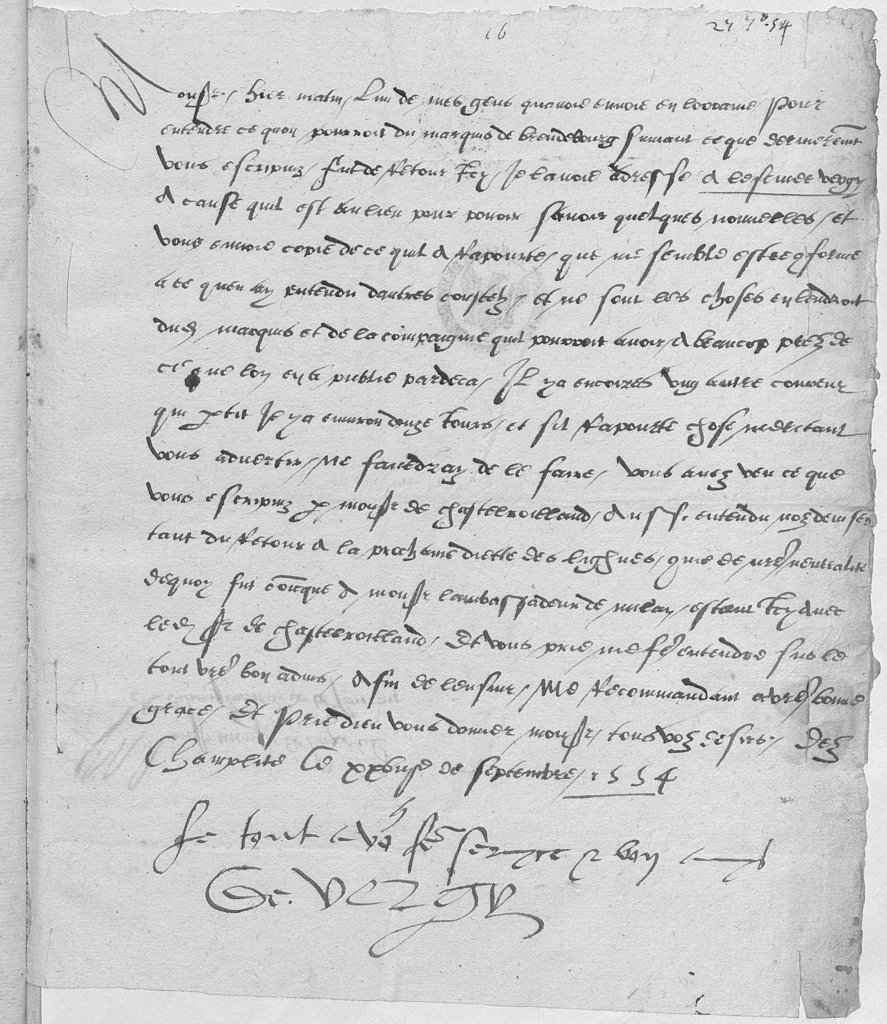 16
27 7b. 54
Monsr, hier matin, l'un de mes gens quavoie envoie en lorraine, pour
entendre ce quon pourroit du marquis de brendebourg suivant ce que dernierement
vous escripviz, fut de retour icy, Je lavoie adresse a
a cause quil est en lieu pour povoir sçavoir quelques nouvelles, et
vous envoie copie de ce quil a rapourte, que me semble estre conforme
a ce quen ay entendu dautres coustelz, et ne sont les choses en lendroit
dud marquis et de la compaignie quil pourroit avoir, a beaucop prez de
ce que lon en a publie pardeca, Il y a encoires ung autre
qui partit Il y a environ douze Jours, et sil rapourte chose meritant
vous advertir, Ne fauldray de le faire, vous avez veu ce que
vous escripviz par monsr de chastelroilland, aussi entendu
tant du retour a la prochaine diette des lighues, que de vre neutralite
dequoy fut a monsr lambassadeur de milan, estant Icy avec
led sr de chastelroilland, Et vous prie me fe entendre sus le
tout vre bon advis, afin de lensuir, Me Recommandant a vre bonne
grace, Et prie dieu vous donner, monsr, tous voz desirs, Dez
Champlite Ce xxvije de septembre, 1554
Le tout a vos fe servyre et bon amy
G. de Vergy